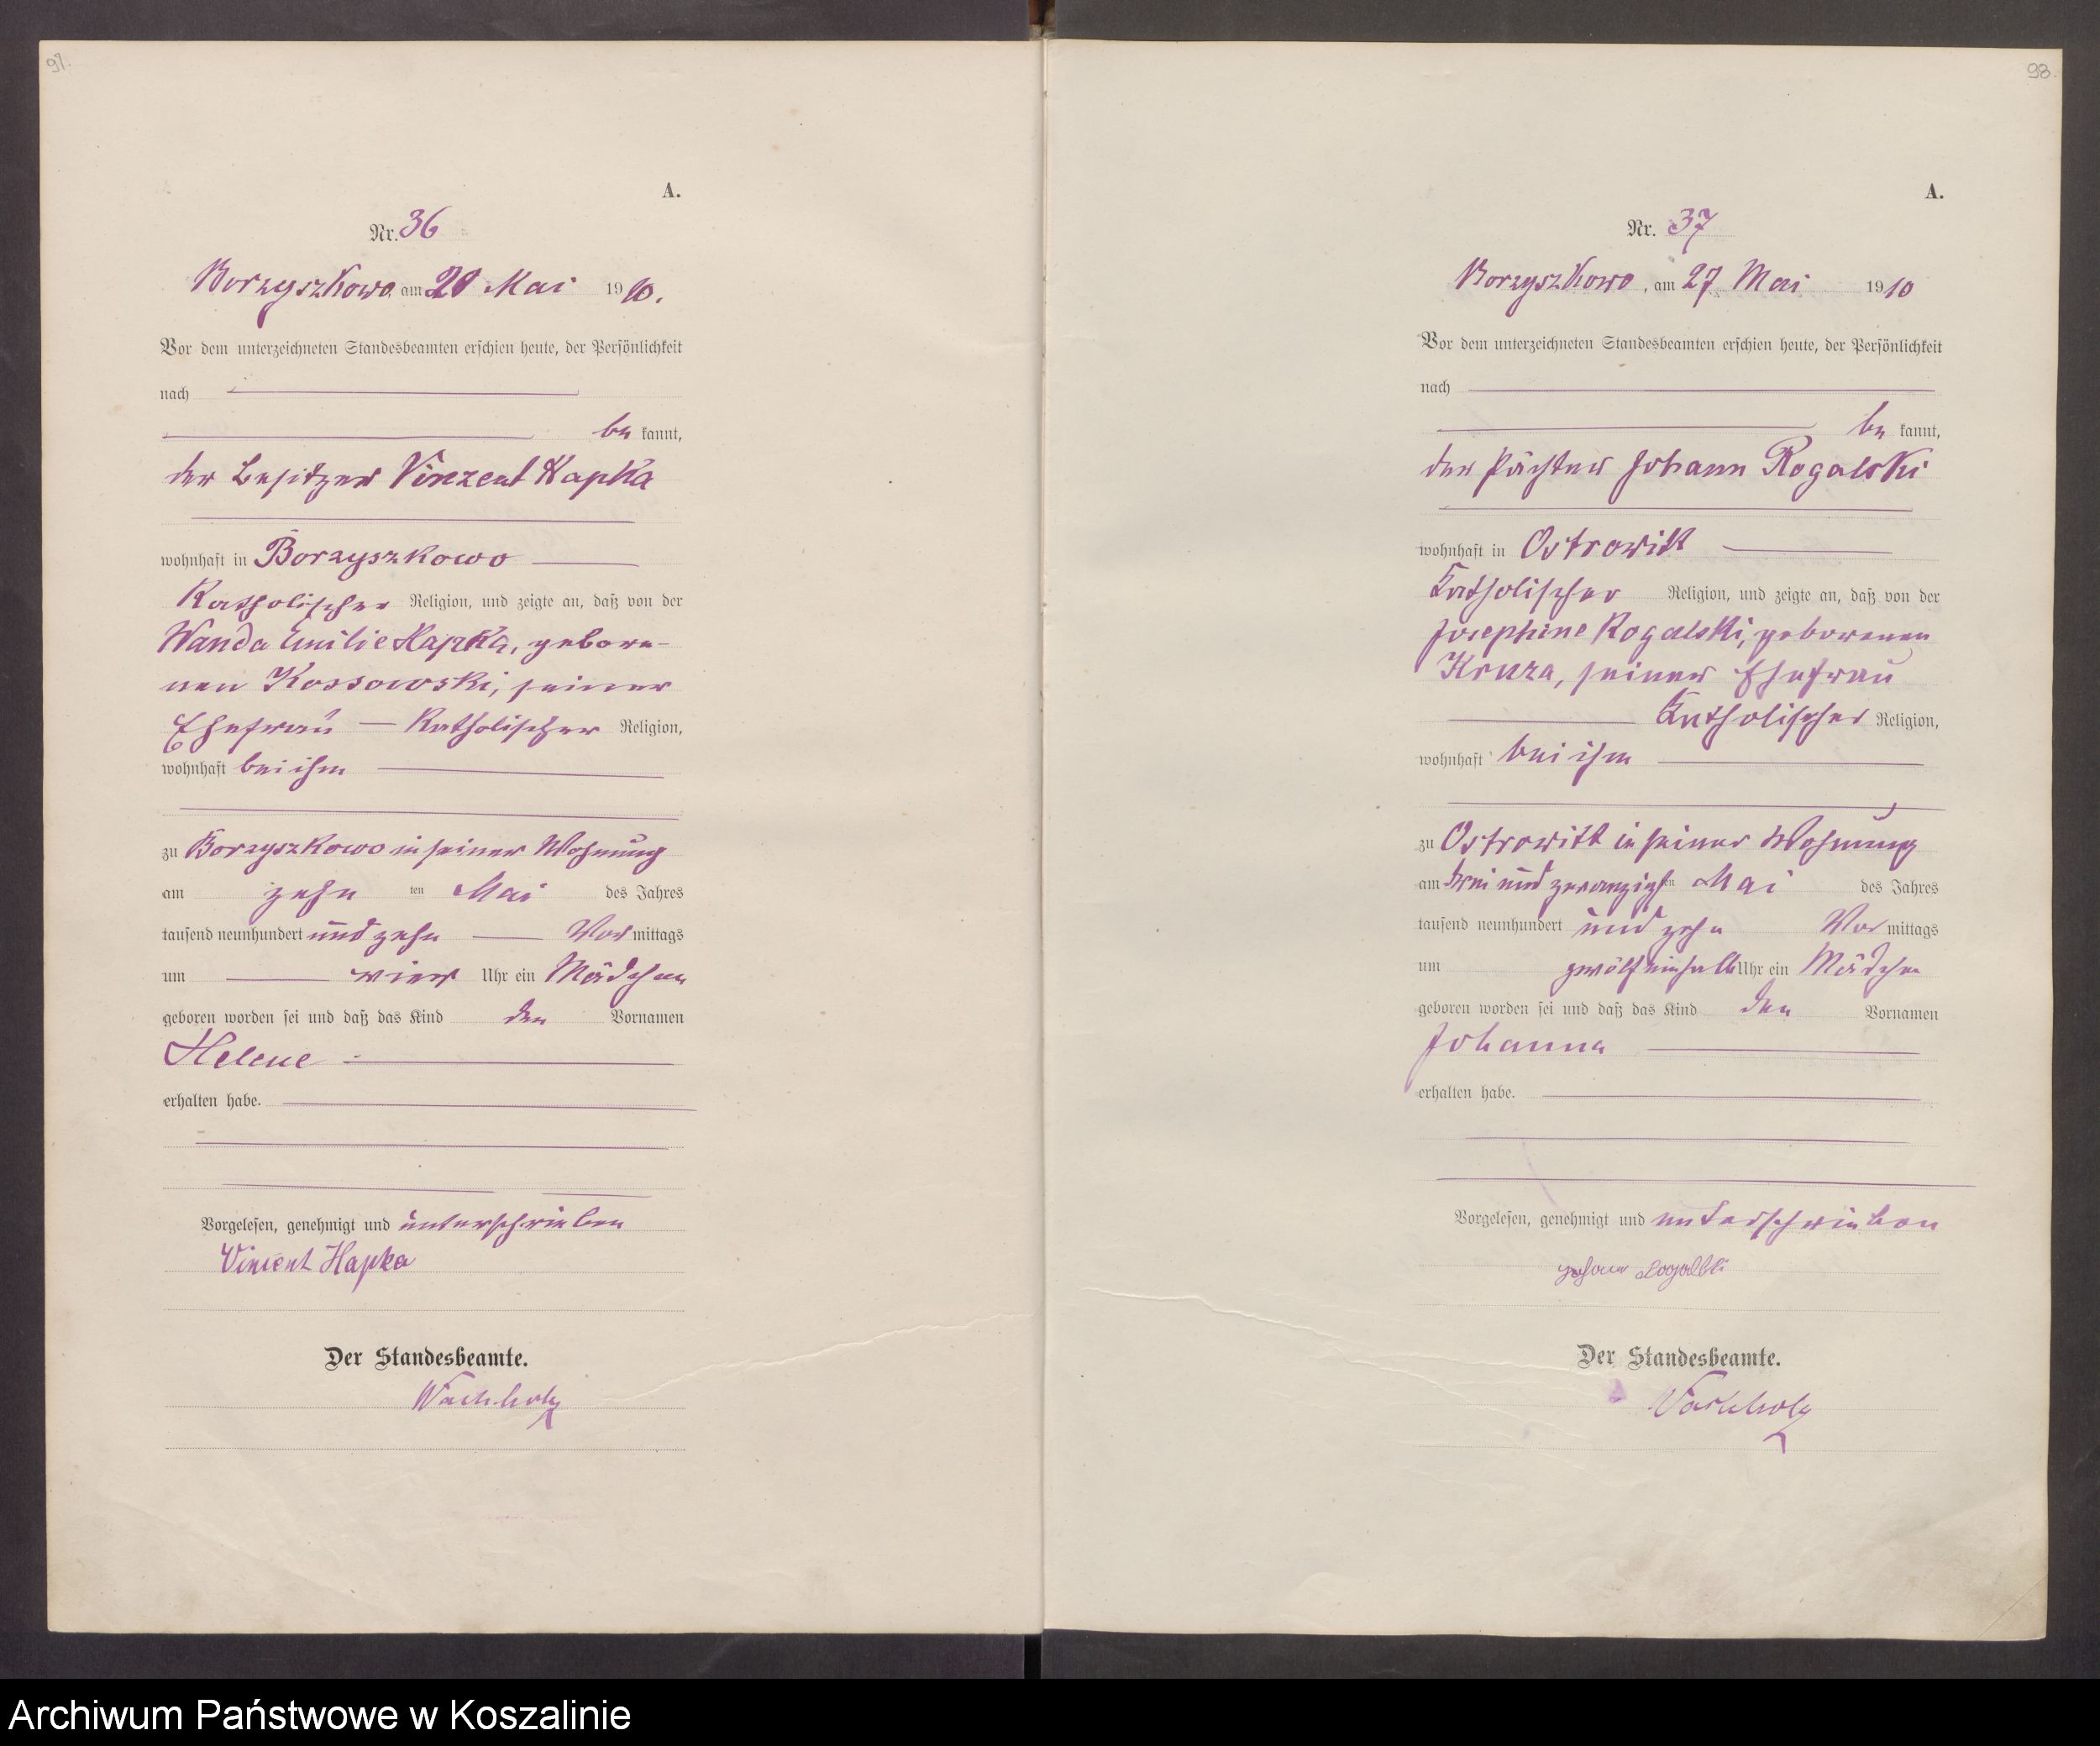 97.
A.
Nr. 36
Borzyszkowo am 20 Mai 1910.
Vor dem unterzeichneten Standesbeamten erschien heute, der Persönlichkeit
nach
be kannt,
der Besitzer Vinzent Hapka
wohnhaft in Borzyszkowo
Katholischer Religion, und zeigte an, daß von der
Wanda Emilie Hapka, gebore-
nen Kossowski, seiner
Ehefrau — Katholischer Religion,
wohnhaft bei ihm
zu Borzyszkowo in seiner Wohnung
am zehn ten Mai des Jahres
tausend neunhundert und zehn — Vor mittags
um vier Uhr ein Mädchen
geboren worden sei und daß das Kind den Vornamen
Helene
erhalten habe.
Vorgelesen, genehmigt und unterschrieben
Vincent Hapka
Der Standesbeamte.
Wachholz
98.
A.
Nr. 37
Borzyszkowo, am 27 Mai 1910
Vor dem unterzeichneten Standesbeamten erschien heute, der Persönlichkeit
nach
be kannt,
der Pächter Johann Rogalski
wohnhaft in Ostrowitt
Katholischer Religion, und zeigte an, daß von der
Josephine Rogalski, geborenen
Kruza, seiner Ehefrau
Katholischer Religion,
wohnhaft bei ihm
zu Ostrowitt in seiner Wohnung
am drei und zwanzigsten Mai des Jahres
tausend neunhundert und zehn Vor mittags
um zwölf einhalb Uhr ein Mädchen
geboren worden sei und daß das Kind den Vornamen
Johanna
erhalten habe.
Vorgelesen, genehmigt und unterschrieben
Johann Rogalski
Der Standesbeamte.
Wachholz
Archiwum Państwowe w Koszalinie